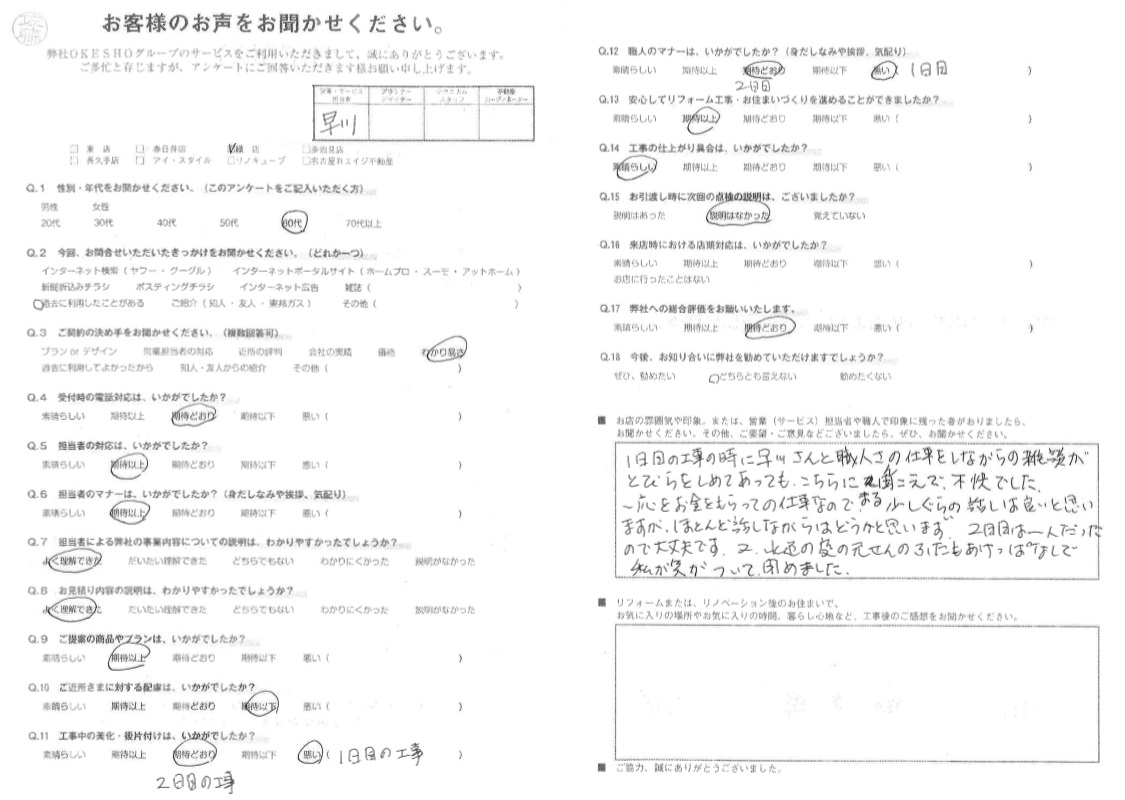 お客様のお声をお聞かせください。
弊社OKESHOグループのサービスをご利用いただきまして、誠にありがとうございます。
ご多忙と存じますが、アンケートにご回答いただきます様お願い申し上げます。
営業・サービス担当者 プランナー デザイナー テクニカルスタッフ
早川
□ 東 店 □ 春日井店 ☑ 緑 店 □多治見店
□ 長久手店 □ アイ・スタイル □リノキューブ □名古屋リエイジ不動産
Q.1 性別・年代をお聞かせください。（このアンケートをご記入いただく方）
男性 女性
20代 30代 40代 50代 60代 70代以上
Q.2 今回、お問合せいただいたきっかけをお聞かせください。（どれか一つ）
インターネット検索（ヤフー・グーグル） インターネットポータルサイト（ホームプロ・スーモ・アットホーム）
新聞折込みチラシ ポスティングチラシ インターネット広告 雑誌（ ）
過去に利用したことがある ご紹介（知人・友人・東邦ガス） その他（ ）
Q.3 ご契約の決め手をお聞かせください。（複数回答可）
プラン or デザイン 営業担当者の対応 近所の評判 会社の実績 価格 わかり易さ
過去に利用してよかったから 知人・友人からの紹介 その他（ ）
Q.4 受付時の電話対応は、いかがでしたか？
素晴らしい 期待以上 期待どおり 期待以下 悪い（ ）
Q.5 担当者の対応は、いかがでしたか？
素晴らしい 期待以上 期待どおり 期待以下 悪い（ ）
Q.6 担当者のマナーは、いかがでしたか？（身だしなみや挨拶、気配り）
素晴らしい 期待以上 期待どおり 期待以下 悪い（ ）
Q.7 担当者による弊社の事業内容についての説明は、わかりやすかったでしょうか？
よく理解できた だいたい理解できた どちらでもない わかりにくかった 説明がなかった
Q.8 お見積り内容の説明は、わかりやすかったでしょうか？
よく理解できた だいたい理解できた どちらでもない わかりにくかった 説明がなかった
Q.9 ご提案の商品やプランは、いかがでしたか？
素晴らしい 期待以上 期待どおり 期待以下 悪い（ ）
Q.10 ご近所さまに対する配慮は、いかがでしたか？
素晴らしい 期待以上 期待どおり 期待以下 悪い（ ）
Q.11 工事中の美化・後片付けは、いかがでしたか？
素晴らしい 期待以上 期待どおり 期待以下 悪い（ 1日目の工事 ）
2日目の工事
Q.12 職人のマナーは、いかがでしたか？（身だしなみや挨拶、気配り）
素晴らしい 期待以上 期待どおり 期待以下 悪い（ 1日目 ）
2日目
Q.13 安心してリフォーム工事・お住まいづくりを進めることができましたか？
素晴らしい 期待以上 期待どおり 期待以下 悪い（ ）
Q.14 工事の仕上がり具合は、いかがでしたか？
素晴らしい 期待以上 期待どおり 期待以下 悪い（ ）
Q.15 お引渡し時に次回の点検の説明は、ございましたか？
説明はあった 説明はなかった 覚えていない
Q.16 来店時における店頭対応は、いかがでしたか？
素晴らしい 期待以上 期待どおり 期待以下 悪い（ ）
お店に行ったことはない
Q.17 弊社への総合評価をお願いいたします。
素晴らしい 期待以上 期待どおり 期待以下 悪い（ ）
Q.18 今後、お知り合いに弊社を勧めていただけますでしょうか？
ぜひ、勧めたい どちらとも言えない 勧めたくない
■ お店の雰囲気や印象。または、営業（サービス）担当者や職人で印象に残った者がおりましたら、
お聞かせください。その他、ご要望・ご意見などございましたら、ぜひ、お聞かせください。
1日目の工事の時に早川さんと職人さの仕事をしながらの雑談が
とびらをしめてあっても、こちらに聞こえて、不快でした。
一応をお金をもらっての仕事なので、少しぐらの話しは良いと思い
ますが、ほとんど話しながらはどうかと思います。 2日目は一人だった
ので大丈夫です。又、水道の元せんのふたもあけっぱなしで
私が気がついて、閉めました。
■ リフォームまたは、リノベーション後のお住まいで、
お気に入りの場所やお気に入りの時間、暮らし心地など、工事後のご感想をお聞かせください。
■ ご協力、誠にありがとうございました。